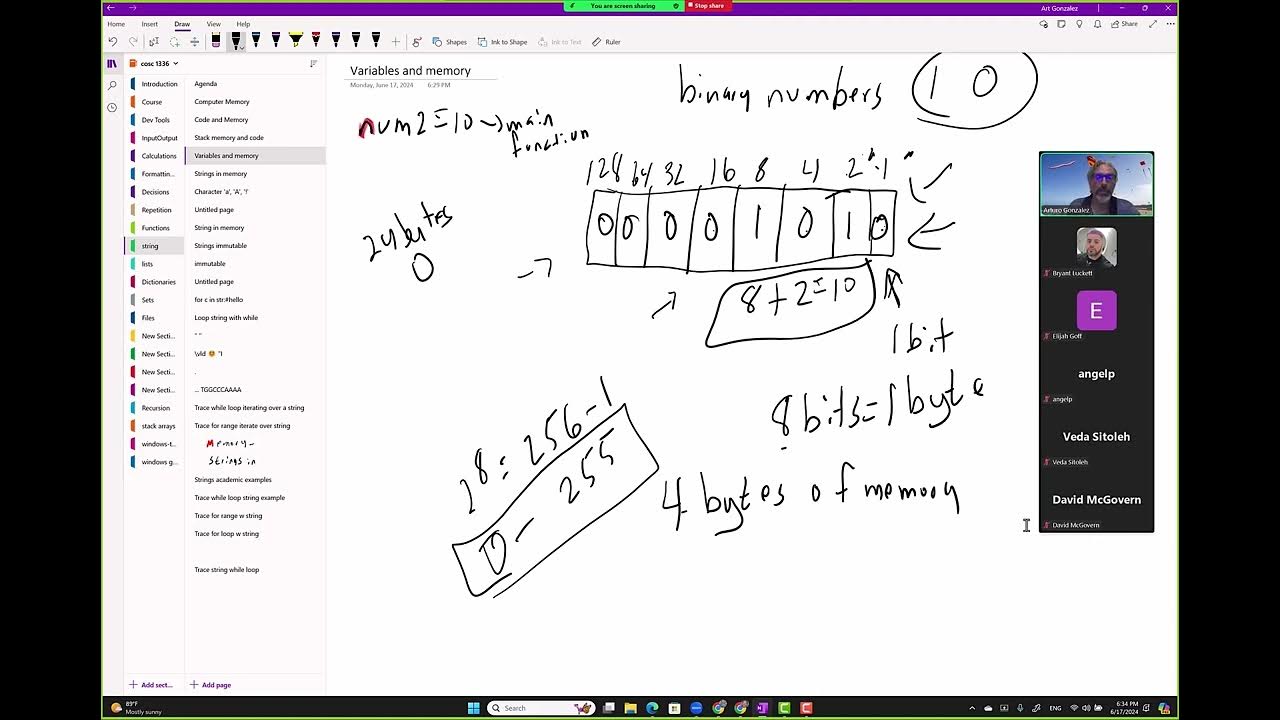 You are screen sharing
Stop share
Art Gonzalez
Home Insert Draw View Help
Share
Shapes Ink to Shape Ink to Text Ruler
cosc 1336
Introduction
Course
Dev Tools
InputOutput
Calculations
Formattin...
Decisions
Repetition
Functions
string
lists
Dictionaries
Sets
Files
New Secti...
New Secti...
New Secti...
New Secti...
Recursion
stack arrays
windows-t...
windows g...
Add sect...
Agenda
Computer Memory
Code and Memory
Stack memory and code
Variables and memory
Strings in memory
Character 'a', 'A', '!'
Untitled page
String in memory
Strings immutable
immutable
Untitled page
for c in str:#hello
Loop string with while
" "
.
... TGGCCCAAAA
Trace while loop iterating over a string
Trace for range iterate over string
Memory -
Strings in
Strings academic examples
Trace while loop string example
Trace for range w string
Trace for loop w string
Trace string while loop
Add page
Variables and memory
Monday, June 17, 2024 6:29 PM
binary numbers 1 0
num2=10 → main
function
128 64 32 16 8 4 2 1
0 0 0 0 1 0 1 0
24 bytes
0
8+2=10
1 bit
8 bits = 1 byte
2 8 = 256-1
0 - 255
4 bytes of memory
Arturo Gonzalez
Bryant Luckett
E
Elijah Goff
angelp
angelp
Veda Sitoleh
Veda Sitoleh
David McGovern
David McGovern
89°F
Mostly sunny
Search
ENG
6:34 PM
6/17/2024